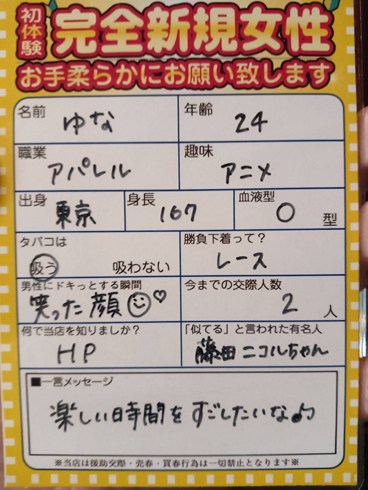 初体験 完全新規女性
お手柔らかにお願い致します
名前 ゆな 年齢 24
職業 アパレル 趣味 アニメ
出身 東京 身長 167 血液型 O 型
タバコは 吸う 吸わない 勝負下着って? レース
男性にドキっとする瞬間 笑った顔☺♡ 今までの交際人数 2 人
何で当店を知りましたか? HP 「似てる」と言われた有名人 藤田ニコルちゃん
■一言メッセージ
楽しい日時間をすごしたいな♪
※当店は援助交際・売春・買春行為は一切禁止となります※